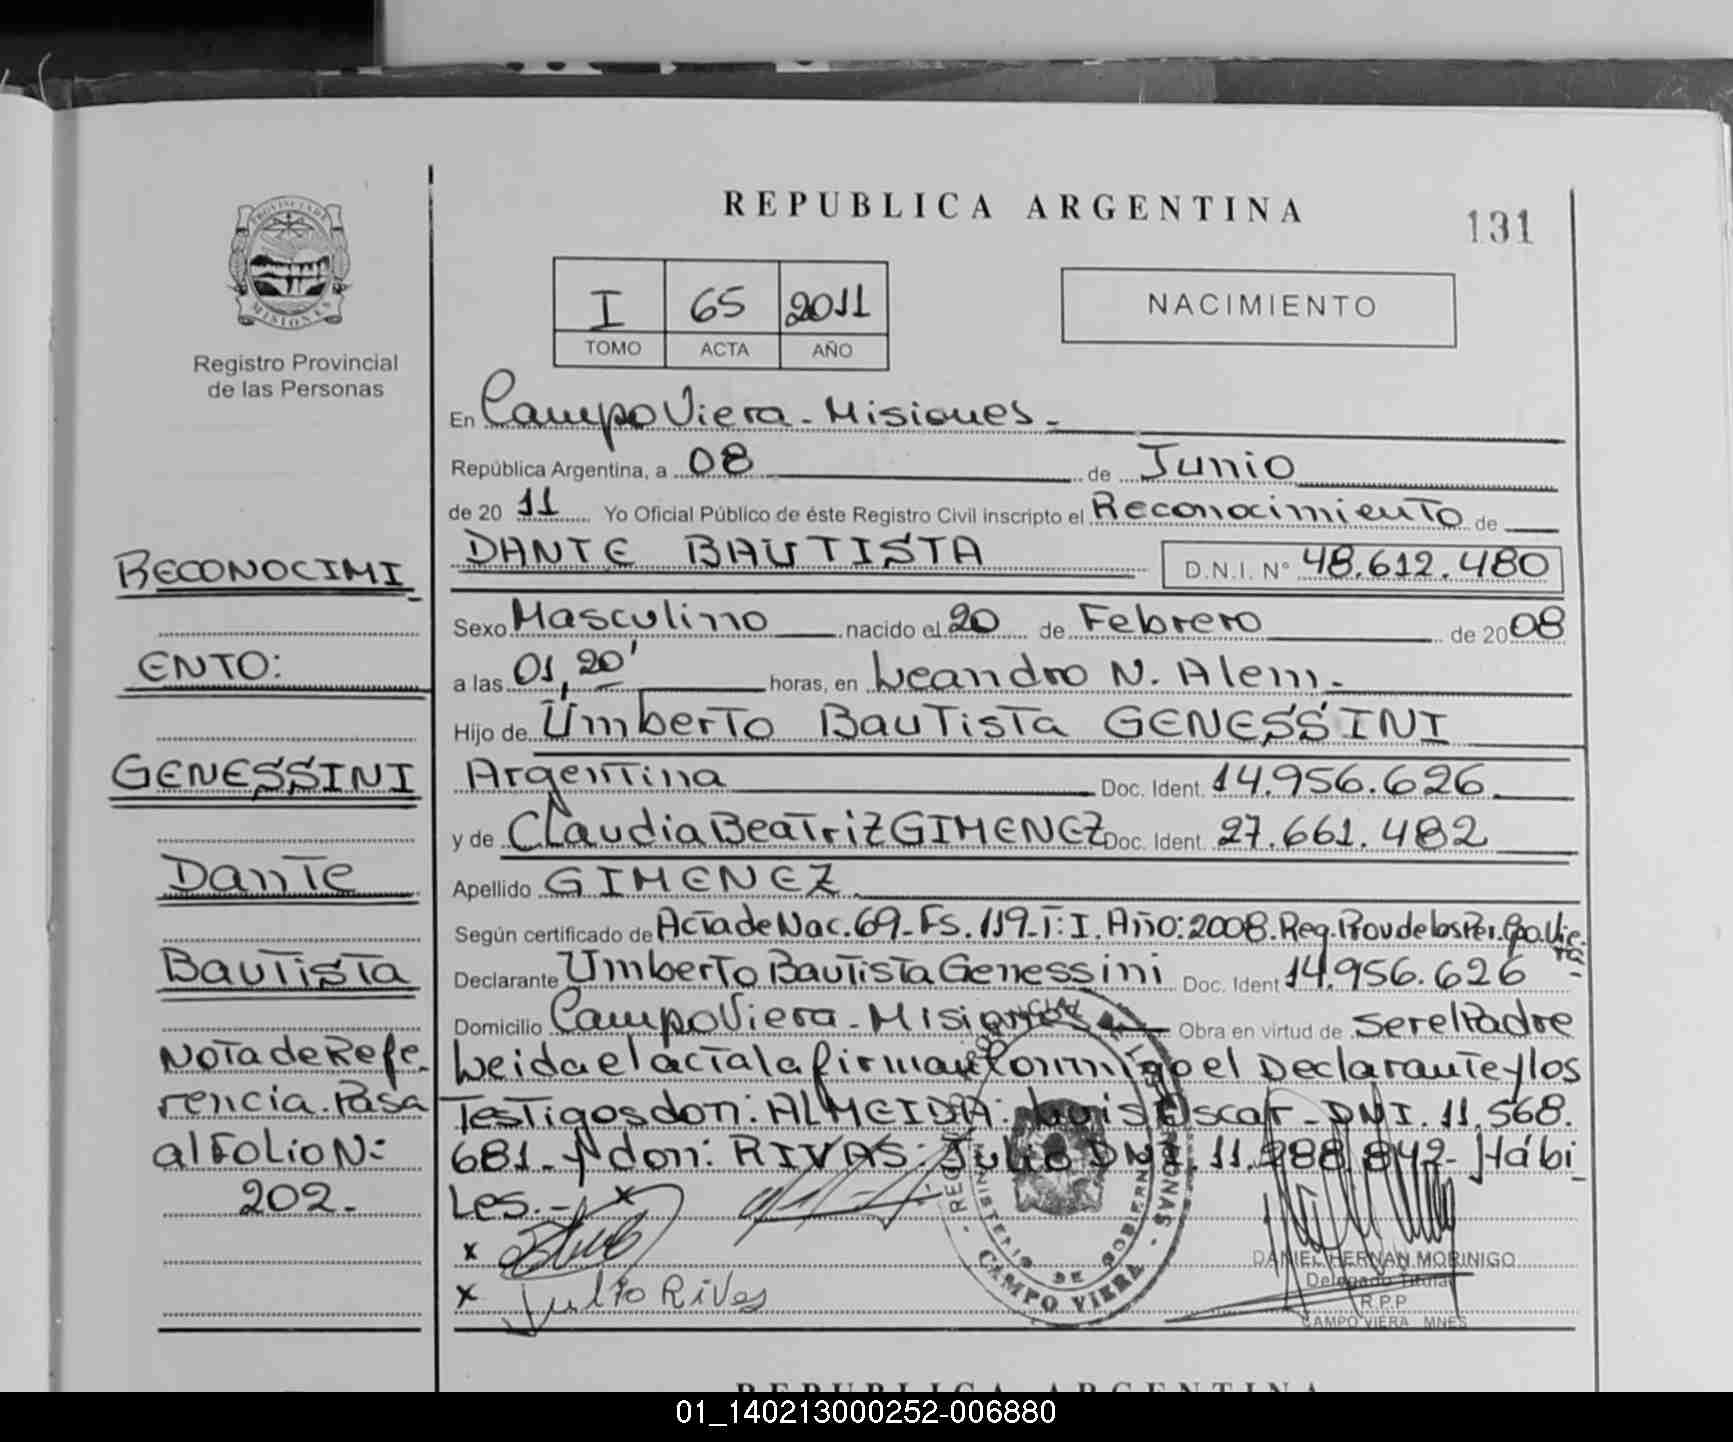 REPUBLICA ARGENTINA
131
PROVINCIA DE
MISIONES
Registro Provincial
de las Personas
I 65 2011
TOMO ACTA AÑO
NACIMIENTO
En Campo Viera - Misiones -
República Argentina, a 08 de Junio
de 20 11 Yo Oficial Público de éste Registro Civil inscripto el Reconocimiento de
DANTE BAUTISTA D.N.I. N° 48.612.480
Sexo Masculino nacido el 20 de Febrero de 20 08
a las 01,20' horas, en Leandro N. Alem.-
Hijo de Umberto Bautista GENESSINI
Argentina Doc. Ident. 14.956.626
y de Claudia Beatriz GIMENEZ Doc. Ident. 27.661.482
Apellido GIMENEZ
Según certificado de Acta de Nac. 69-Fs. 119-T: I. Año: 2008. Reg. Prov de las Per. Cpo. Vie-
ra-
Declarante Umberto Bautista Genessini Doc. Ident 14.956.626
Domicilio Campo Viera - Misiones Obra en virtud de ser el Padre
Leida el acta la firman conmigo el Declarante y los
Testigos don: ALMEIDA: Luis Oscar - DNI. 11.568.
681 - Y don: RIVAS: Julio DNI. 11.988.842- Hábi-
les.- x
x
x Julio Rivas
RECONOCIMI-
ENTO:
GENESSINI
Dante
Bautista
Nota de Refe-
rencia. Pasa
al Folio N:
202.-
MINISTERIO DE GOBIERNO
- CAMPO VIERA -
DANIEL HERNAN MORINIGO
Delegado Titular
R.P.P
CAMPO VIERA MNES
REPUBLICA ARGENTINA
01_140213000252-006880